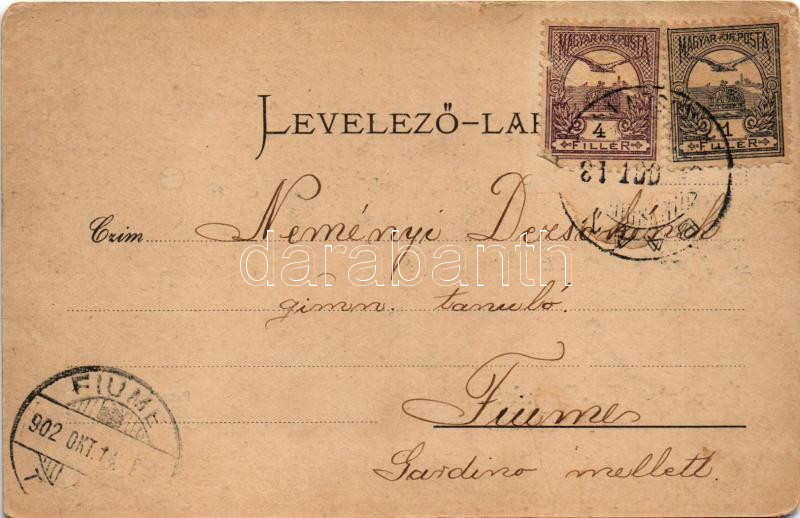 MAGYAR·KIR·POSTA
4
FILLÉR
MAGYAR·KIR·POSTA
1
FILLÉR
LEVELEZŐ-LAP
Czim Neményi Dezsőnek
darabanth
gimn. tanuló.
FIUME
902 OKT. 14
Fiume
Gardino mellett.